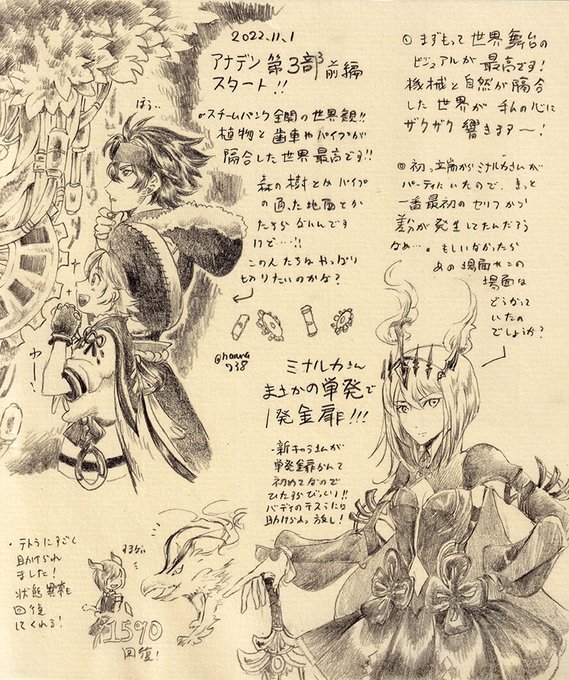 2022.11.1
アナデン 第3部 前編
スタート!!
ほう..
・スチームパンク全開の世界観!!
植物と歯車やパイプが
融合した世界最高です!!
森の樹とかパイプ
の通った地面とか
たまらないんです
けど…!!
この人たちは やっぱり
切りたいのかな?
わー!
@hanva
738
① まずもって 世界 舞台の
ビジュアルが 最高です!
機械と自然が融合
した世界が 私の心に
ザクザク 響きます〜!
② 初っ端からミナルカさんが
パーティにいたので、きっと
一番最初のセリフから
差分が発生してたんだろう
なぁ…。もしいなかったら
あの場面やこの
場面は
どうなって
いたの
でしょうか?
ミナルカさん
まさかの単発で
1発金扉!!!
・新キャラさんが
単発金扉なんて
初めてなので
ひたすらびっくり!!
バディのテスラにも
助けられっ放し!
・テトラにすごく
助けられ
ました!
状態異常も
回復
してくれる!
すごい
1590
回復!